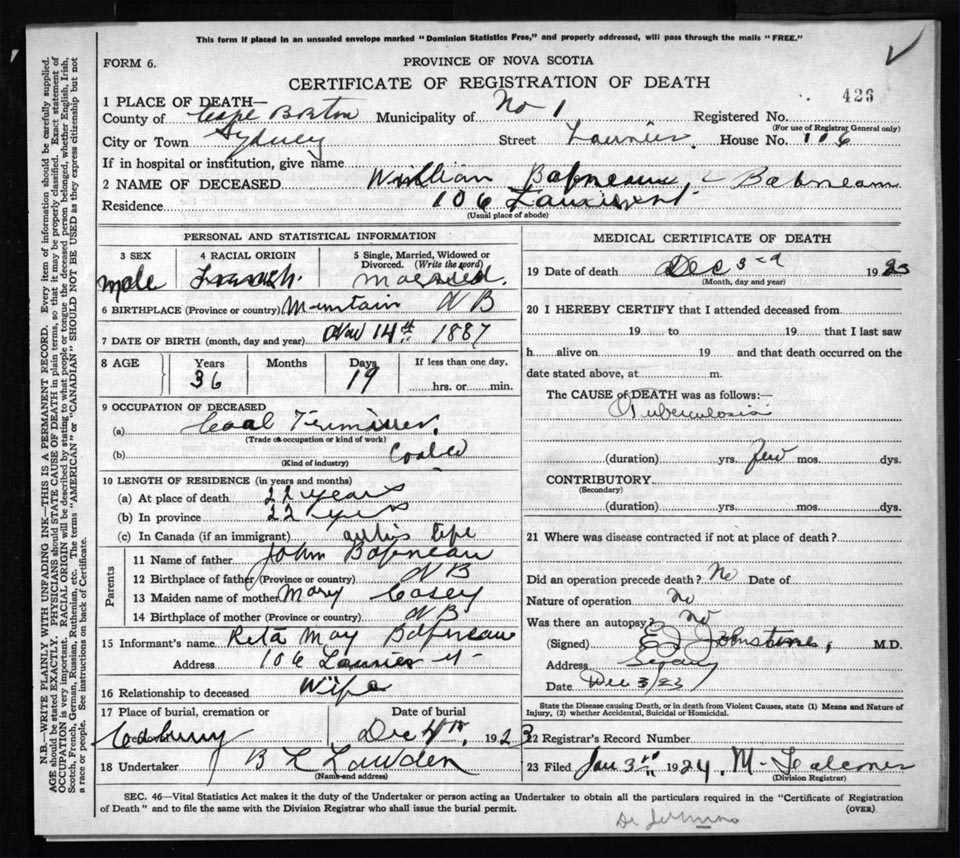 This form if placed in an unsealed envelope marked "Dominion Statistics Free," and properly addressed, will pass through the mails "FREE."
FORM 6.
PROVINCE OF NOVA SCOTIA
CERTIFICATE OF REGISTRATION OF DEATH
423
1 PLACE OF DEATH—
County of Cape Breton Municipality of No 1 Registered No.
(For use of Registrar General only)
City or Town Sydney Street Laurier. House No. 106
If in hospital or institution, give name
2 NAME OF DECEASED William Babneau Babneau
Residence 106 Laurier st.
(Usual place of abode)
PERSONAL AND STATISTICAL INFORMATION
3 SEX
male
4 RACIAL ORIGIN
French.
5 Single, Married, Widowed or Divorced. (Write the word)
Married.
6 BIRTHPLACE (Province or country) Mountain N B
7 DATE OF BIRTH (month, day and year) Nov 14th 1887
8 AGE Years Months Days If less than one day,
36 19 hrs. or min.
9 OCCUPATION OF DECEASED
(a) Coal Trimmer.
(Trade or occupation or kind of work)
(b)
(Kind of industry)
10 LENGTH OF RESIDENCE (in years and months)
(a) At place of death 22 years
(b) In province 22 yers
(c) In Canada (if an immigrant) all his life
Parents
11 Name of father John Babneau
12 Birthplace of father (Province or country) N B
13 Maiden name of mother Mary Casey
14 Birthplace of mother (Province or country) N B
15 Informant's name Reta May Babneau
Address 106 Laurier st
16 Relationship to deceased Wife
17 Place of burial, cremation or Date of burial
Dec 4th, 1923
18 Undertaker B L Lawden
(Name and address)
MEDICAL CERTIFICATE OF DEATH
19 Date of death Dec 3rd 1923
(Month, day and year)
20 I HEREBY CERTIFY that I attended deceased from
19 to 19 that I last saw
h alive on 19 and that death occurred on the
date stated above, at m.
The CAUSE of DEATH was as follows:—
Tuberculosis
(duration) yrs. few mos. dys.
CONTRIBUTORY
(Secondary)
(duration) yrs. mos. dys.
21 Where was disease contracted if not at place of death?
Did an operation precede death? No Date of
Nature of operation no
Was there an autopsy? no
(Signed) E J Johnstone, M.D.
Address Sydney
Date Dec 3/23
State the Disease Causing Death, or in death from Violent Causes, state (1) Means and Nature of
Injury, (2) whether Accidental, Suicidal or Homicidal.
22 Registrar's Record Number
23 Filed Jan 3rd 1924, M. Falconer
(Division Registrar)
SEC. 46—Vital Statistics Act makes it the duty of the Undertaker or person acting as Undertaker to obtain all the particulars required in the "Certificate of Registration
of Death" and to file the same with the Division Registrar who shall issue the burial permit. (OVER)
N.B.—WRITE PLAINLY WITH UNFADING INK—THIS IS A PERMANENT RECORD. Every item of information should be carefully supplied.
AGE should be stated EXACTLY. PHYSICIANS should STATE CAUSE OF DEATH in plain terms, so that it may be properly classified. Exact statement of
OCCUPATION is very important. RACIAL ORIGIN will be described by stating to what people or tongue the deceased person belonged, whether English, Irish,
Scotch, French, German, Russian, Ruthenian, etc. The terms "AMERICAN" or "CANADIAN" SHOULD NOT BE USED as they express citizenship but not
a race or people. See instructions on back of Certificate.